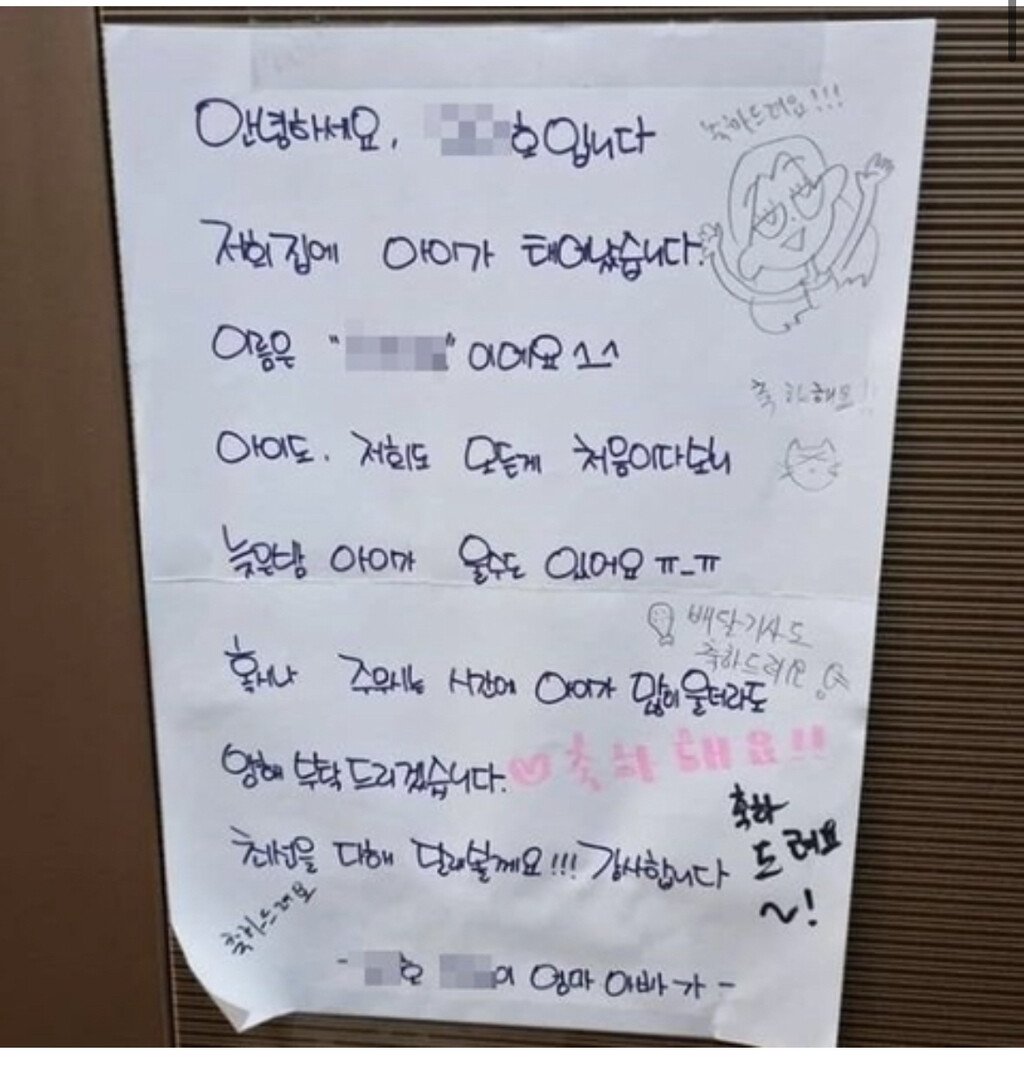 안녕하세요, 호입니다
축하드려요!!!
저희 집에 아이가 태어났습니다.
이름은 " " 이에요 ^_^
축하해요!!
아이도, 저희도 모든게 처음이다보니
늦은밤 아이가 울수도 있어요 ㅠ_ㅠ
배달기사도
축하드려요
혹시나 주무시는 시간에 아이가 많이 울더라도
양해 부탁드리겠습니다.
♡축하해요!!
최선을 다해 달래볼께요!!! 감사합니다
축하
드려요
~!
축하드려요
- 호 이 엄마 아빠가 -